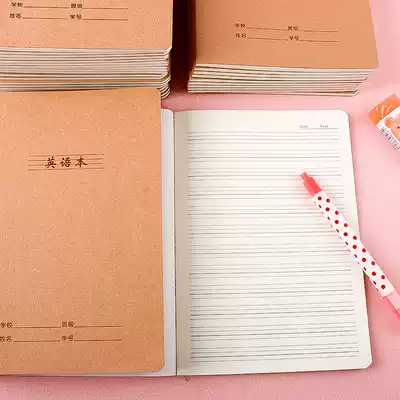 学校 班级
姓名 学号
学校 班级
姓名 学号
英语本
Date Page
学校 班级
姓名 学号